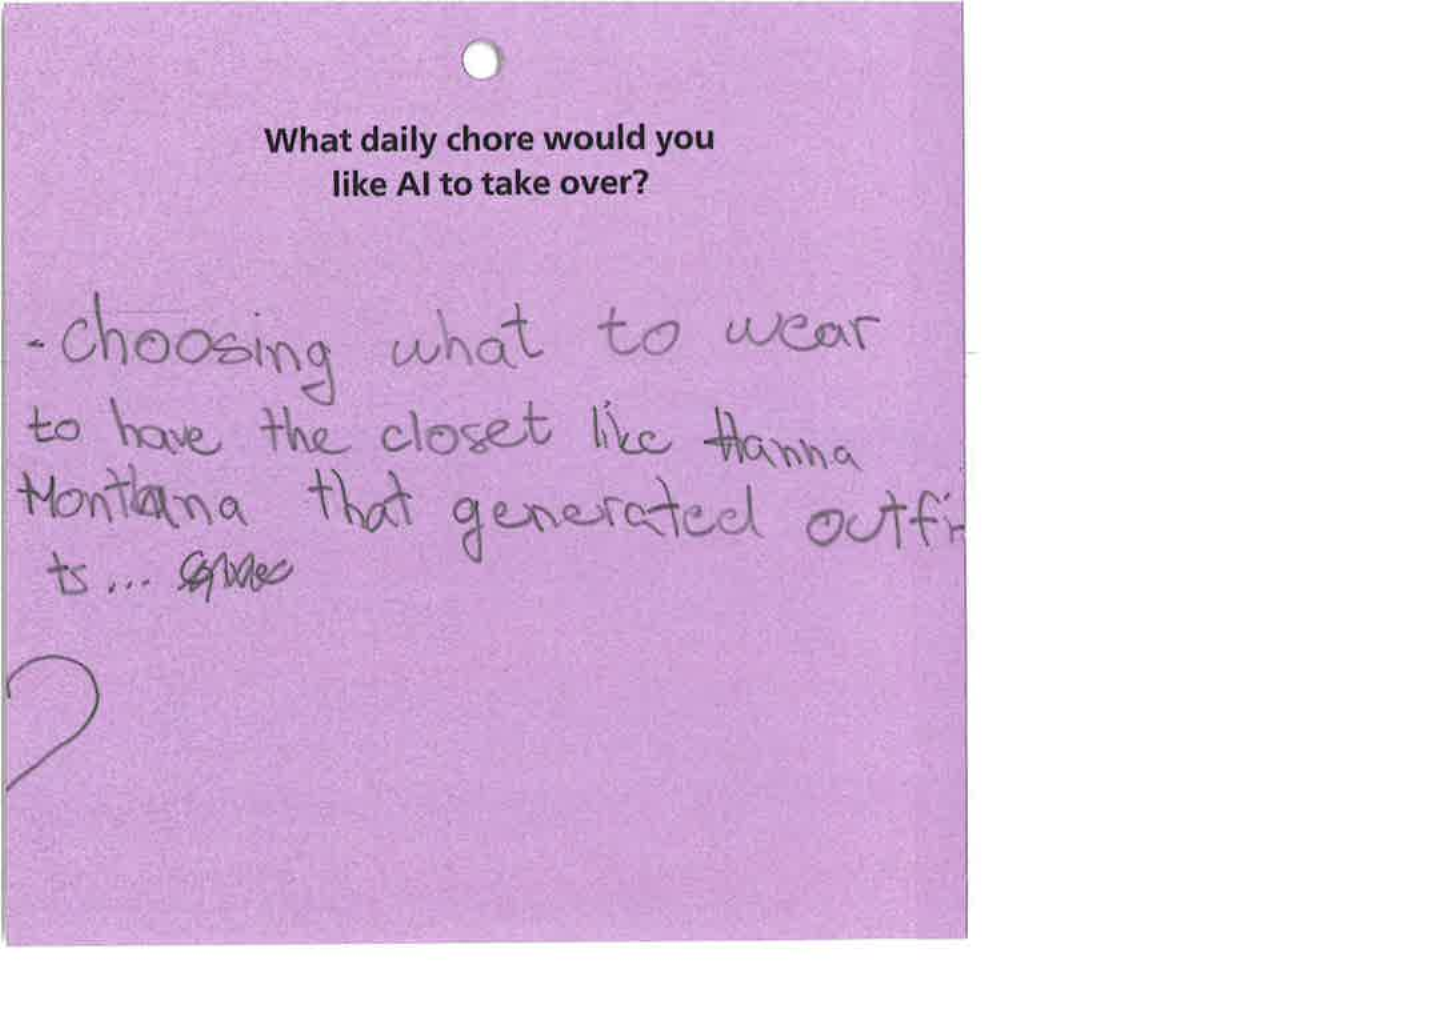 What daily chore would you
like AI to take over?
- choosing what to wear
to have the closet like Hanna
Montana that generated outfi
ts...